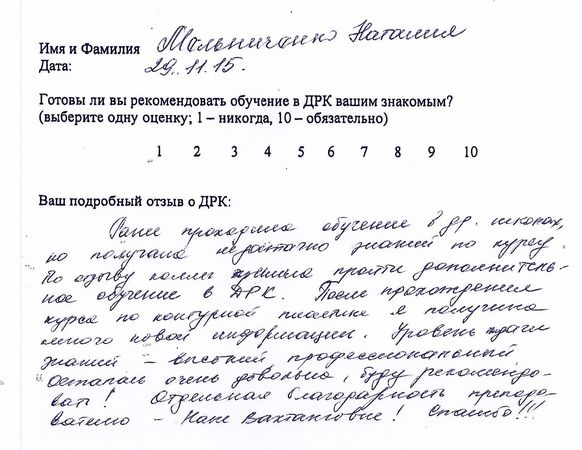 Имя и Фамилия Мельниченко Наталия
Дата: 29.11.15.
Готовы ли вы рекомендовать обучение в ДРК вашим знакомым?
(выберите одну оценку; 1 – никогда, 10 – обязательно)
1 2 3 4 5 6 7 8 9 10
Ваш подробный отзыв о ДРК:
Ранее проходила обучение в др. школах,
но получала недостачно знаний по курсу.
По отзыву коллег решила пройти дополнитель-
ное обучение в ДРК. После прохождения
курса по контурной пластике я получила
много новой информации. Уровень подачи
знаний – высокий профессиональный
Осталась очень довольна, буду рекомендо-
вать! Отдельная благодарность препода-
вателю – Нане Вахтанговне! Спасибо!!!